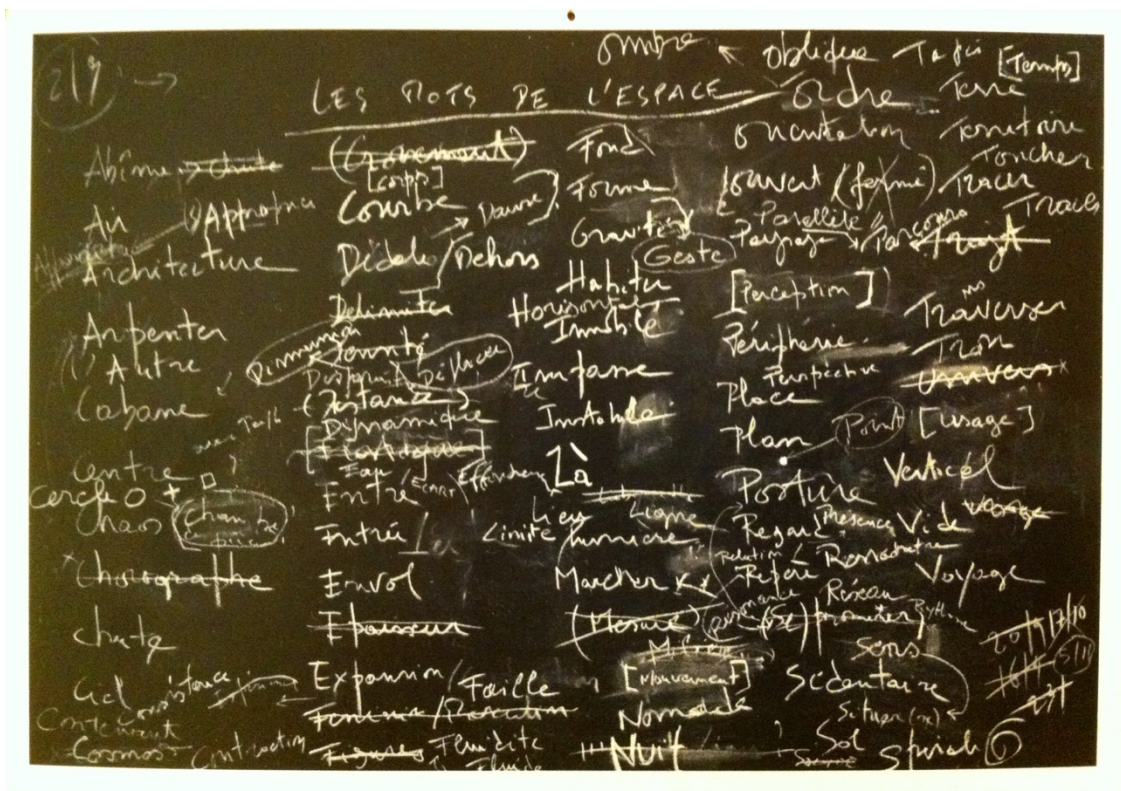 LES MOTS DE L'ESPACE
Abîme
Air
Architecture
Arpenter
Autre
Cabane
Centre
Cercle
Chaos
Chorégraphe
Chute
Ciel Consistance
Cosmos Contraction
[corps]
Courbe
Danse
Dédale / Dehors
Délimiter
(Distance)
Dynamique
Eau / Écart
Entre
Entrée
Envol
Epaisseur
Expansion / Faille
Figures Fluidité
Fluide
Fond
Forme
Gravité
Geste
Habiter
Horizontal
Immobile
Impasse
Instable
Là
Lieu Ligne
Limite / Lumière
Marcher
(Mesure)
[Mouvement]
Nomade
NUIT
Ombre
Oblique
Ordre
Orientation
Ouvert (fermé)
Parallèle
Paysage Parcours
[Perception]
Périphérie
Perspective
Place
Plan Point
Posture
Regard Présence
Relation
Repère
Réseau
Rythme
Sens
Sédentaire
Situer (se)
Sol Spirale
[Temps]
Terre
Territoire
Toucher
Tracer
Traces
Trajet
Traverser
Trou
Univers
[usage]
Vertical
Vide
Voyage
17/10